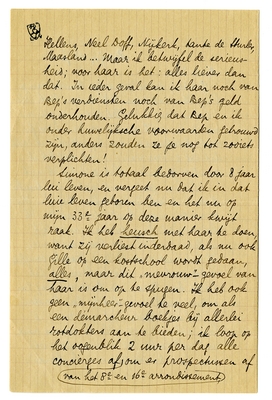 Hellens, Neel Doff, Nijkerk, tante de Hurlu,
Maasland... Maar ik betwijfel de serieus-
heid; voor haar is het: alles liever dan
dat. In ieder geval kan ik haar noch van
Bep's verdiensten noch van Bep's geld
onderhouden. Gelukkig dat Bep en ik
onder huwelijksche voorwaarden getrouwd
zijn, anders zouden ze je nog tot zooiets
verplichten!
Simone is totaal bedorven door 8 jaar
lui leven, en vergeet nu dat ik in dat
luie leven geboren ben en het nu op
mijn 33ste jaar op deze manier kwijt
raak. Ik heb heusch met haar te doen,
want zij verliest inderdaad, als nu ook
Gille op een kostschool wordt gedaan,
alles, maar dit „mevrouw"-gevoel van
haar is om op te spugen. Ik heb ook
geen „mijnheer"-gevoel te veel, om als
een démarcheur boekjes bij allerlei
rotdokters aan te bieden; ik loop op
het oogenblik 2 uur per dag alle
concierges af, om er prospectussen af
van het 8e en 16e arrondissement